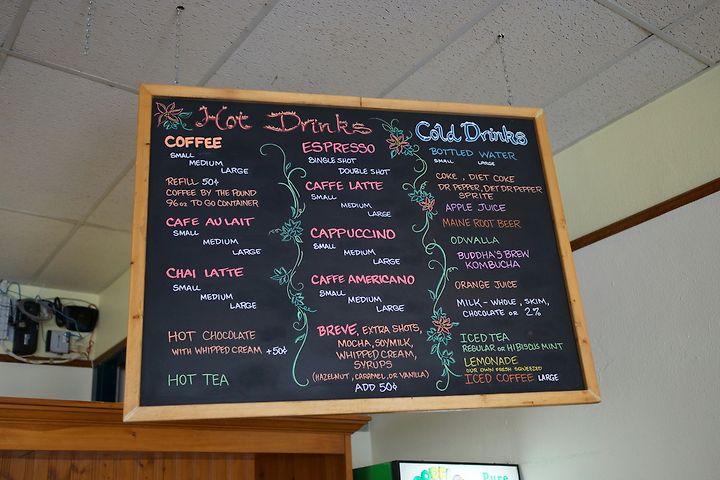 Hot Drinks
COFFEE
SMALL
MEDIUM
LARGE
REFILL 50¢
COFFEE BY THE POUND
96oz TO GO CONTAINER
CAFE AU LAIT
SMALL
MEDIUM
LARGE
CHAI LATTE
SMALL
MEDIUM
LARGE
HOT CHOCOLATE
WITH WHIPPED CREAM +50¢
HOT TEA
ESPRESSO
SINGLE SHOT
DOUBLE SHOT
CAFFE LATTE
SMALL
MEDIUM
LARGE
CAPPUCCINO
SMALL
MEDIUM
LARGE
CAFFE AMERICANO
SMALL
MEDIUM
LARGE
BREVE, EXTRA SHOTS,
MOCHA, SOYMILK,
WHIPPED CREAM,
SYRUPS
(HAZELNUT, CARAMEL, OR VANILLA)
ADD 50¢
Cold Drinks
BOTTLED WATER
SMALL LARGE
COKE, DIET COKE
DR PEPPER, DIET DR PEPPER
SPRITE
APPLE JUICE
MAINE ROOT BEER
ODWALLA
BUDDHA'S BREW
KOMBUCHA
ORANGE JUICE
MILK - WHOLE, SKIM,
CHOCOLATE OR 2%
ICED TEA
REGULAR OR HIBISCUS MINT
LEMONADE
OUR OWN FRESH SQUEEZED
ICED COFFEE LARGE
Pure